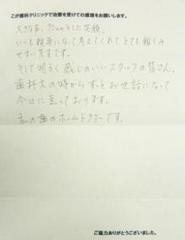 こが歯科クリニックで治療を受けての感想をお願いします。
大きな声、
とした笑顔、
いつも親身になって考えてくれてとても頼もしい
先生です。
そして明るく感じのいいスタッフの皆さん。
歯科大の時からずっとお世話になって
今日に至っております。
私の歯のホームドクターです。
ご協力ありがとうございました。